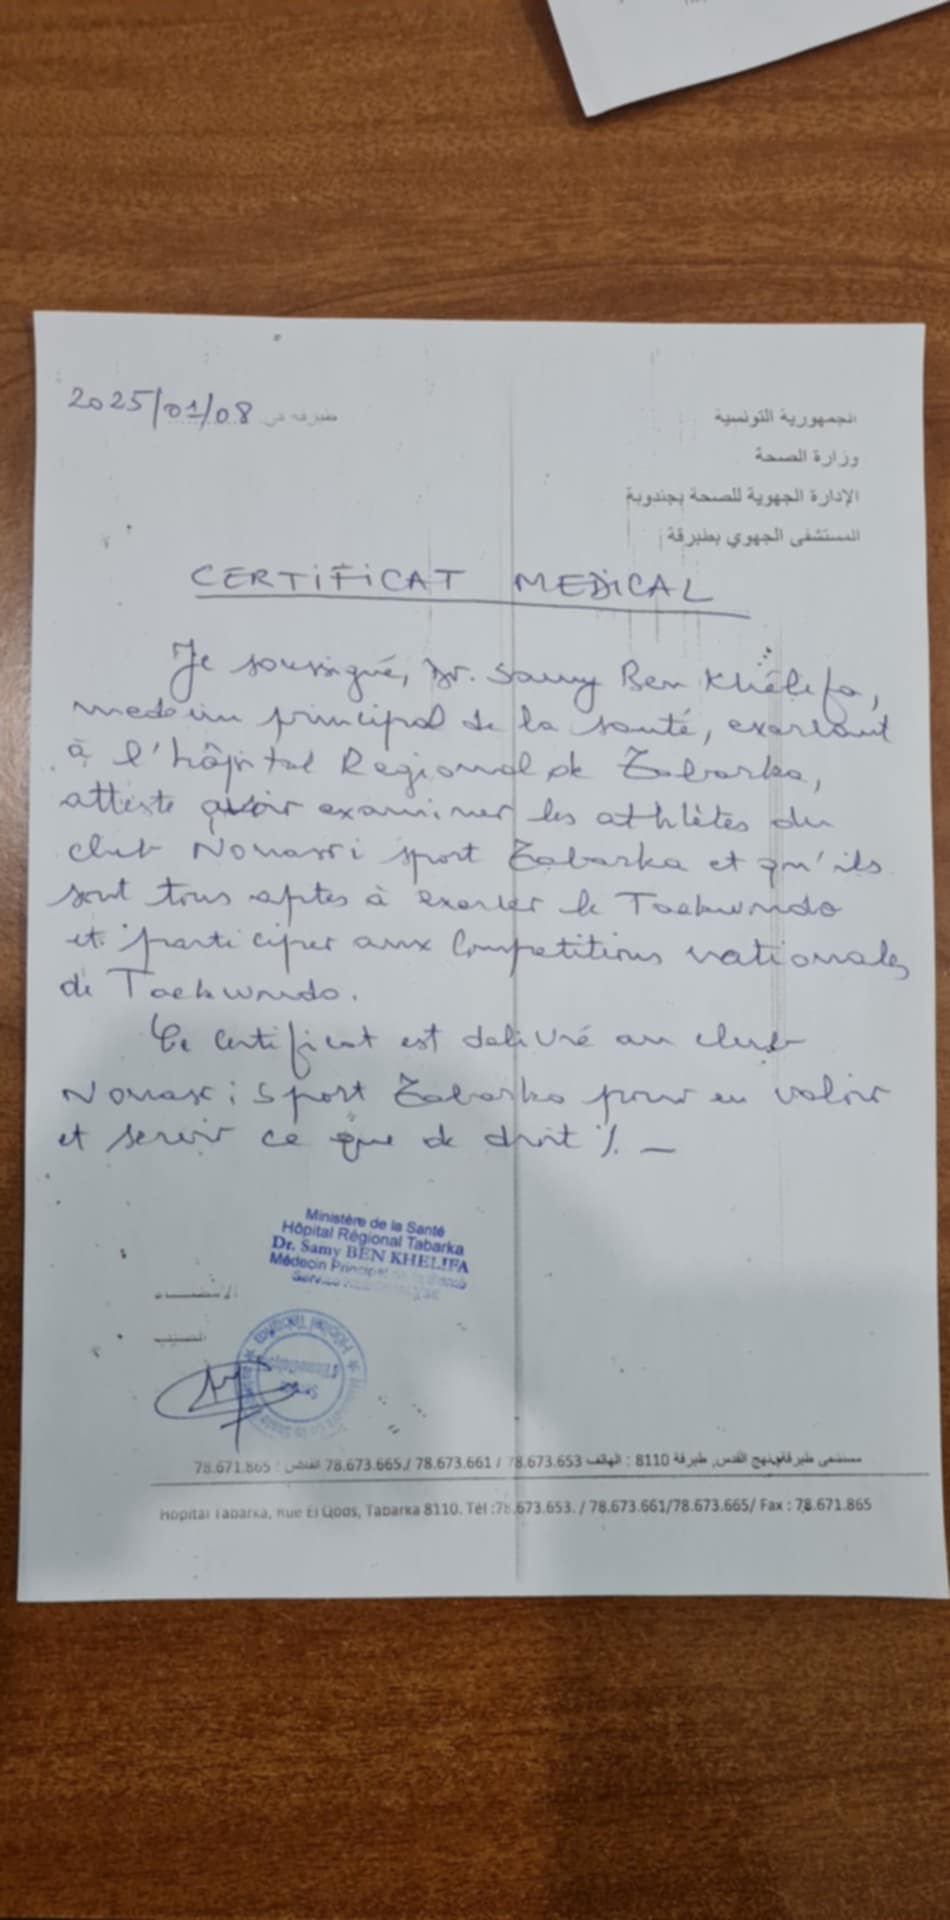 2025/01/08 طبرقة في
الجمهورية التونسية
وزارة الصحة
الإدارة الجهوية للصحة بجندوبة
المستشفى الجهوي بطبرقة
CERTIFICAT MEDICAL
Je soussigné, Dr. Samy Ben Khélifa,
medecin principal de la santé, exerçant
à l'hôpital Regional de Tabarka,
atteste avoir examiner les athlètes du
club Nouasri sport Tabarka et qu'ils
sont tous aptes à exercer le Taekwondo
et participer aux Compétitions nationales
de Taekwondo.
Ce certificat est delivré au club
Nouasri Sport Tabarka pour en valoir
et servir ce que de droit ./. _
Ministère de la Santé
Hôpital Régional Tabarka
Dr. Samy BEN KHELIFA
Médecin Principal de la Santé
الإمضاء
الطبيب
Hôpital Tabarka
مستشفى طبرقة نهج القدس, طبرقة 8110 : الهاتف 78.673.653 / 78.673.661 / 78.673.665 الفاكس : 78.671.865
Hôpital Tabarka, Rue El Qods, Tabarka 8110. Tél :78.673.653. / 78.673.661/78.673.665/ Fax : 78.671.865